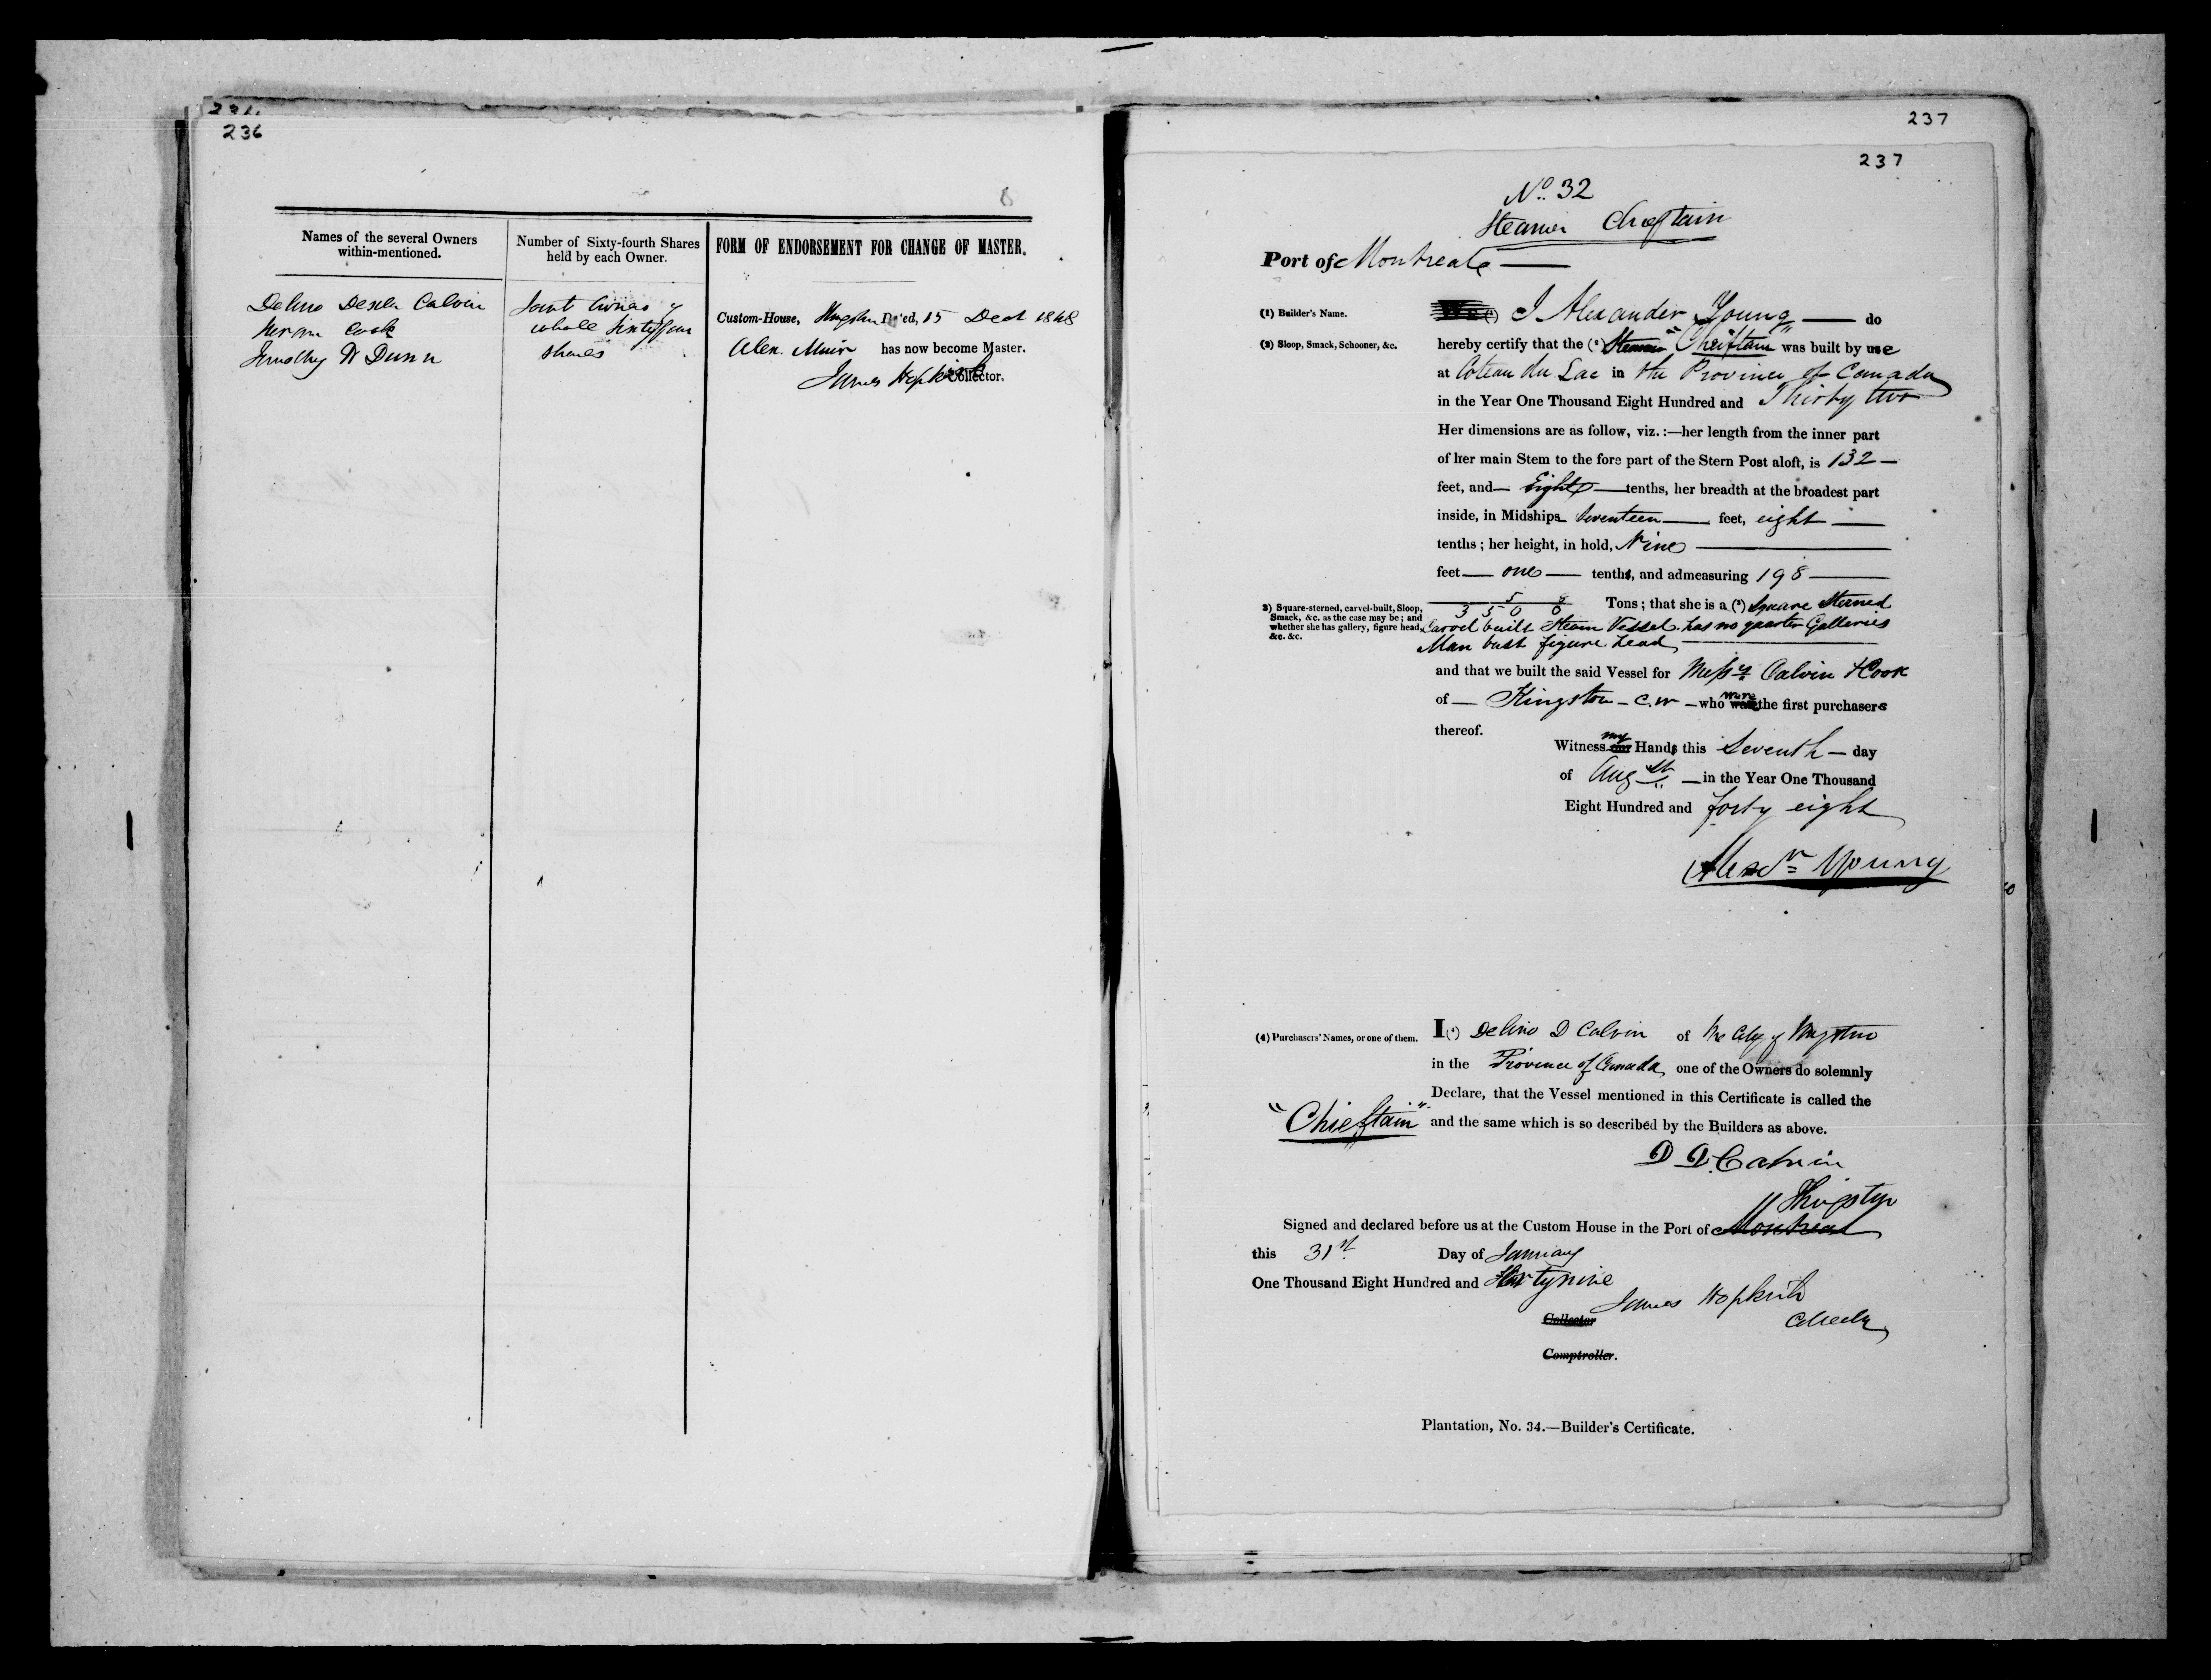 236
236
6
Names of the several Owners
within-mentioned.
Number of Sixty-fourth Shares
held by each Owner.
FORM OF ENDORSEMENT FOR CHANGE OF MASTER.
Delino Dexter Calvin
Hiram Cook
Timothy W Dunn
Joint Owners of
whole Sixty four
shares
Custom-House, Kingston Dated, 15 Dect 1848
Alex. Muir has now become Master.
James Hopkirk Collector.
237
237
No. 32
Steamer Chieftain
Port of Montreal
(1) Builder's Name.
I Alexander Young do
(2) Sloop, Smack, Schooner, &c.
hereby certify that the (2) Steamer "Cheiftain" was built by me
at Coteau du Lac in the Province of Canada
in the Year One Thousand Eight Hundred and Thirty two
Her dimensions are as follow, viz.:—her length from the inner part
of her main Stem to the fore part of the Stern Post aloft, is 132—
feet, and— Eight —tenths, her breadth at the broadest part
inside, in Midships Seventeen feet, eight
tenths; her height, in hold, Nine
feet — one — tenths, and admeasuring 198
3) Square-sterned, carvel-built, Sloop,
Smack, &c. as the case may be; and
whether she has gallery, figure head,
&c. &c.
3500 Tons; that she is a (3) Square Sterned
Carvel built Steam Vessel. has no quarter Galleries
Man bust figure head
and that we built the said Vessel for Messrs Calvin & Cook
of — Kingston — C.W — who were the first purchasers
thereof.
Witness my Hand this Seventh — day
of Augst — in the Year One Thousand
Eight Hundred and forty eight
Alexr Young
(4) Purchasers' Names, or one of them.
I (4) Delino D Calvin of the City of Kingston
in the Province of Canada, one of the Owners do solemnly
Declare, that the Vessel mentioned in this Certificate is called the
"Chieftain" and the same which is so described by the Builders as above.
D D. Calvin
Kingston
Signed and declared before us at the Custom House in the Port of Montreal
this 31st Day of January
One Thousand Eight Hundred and Forty nine
James Hopkirk
Collector
Collector
Comptroller.
Plantation, No. 34.—Builder's Certificate.